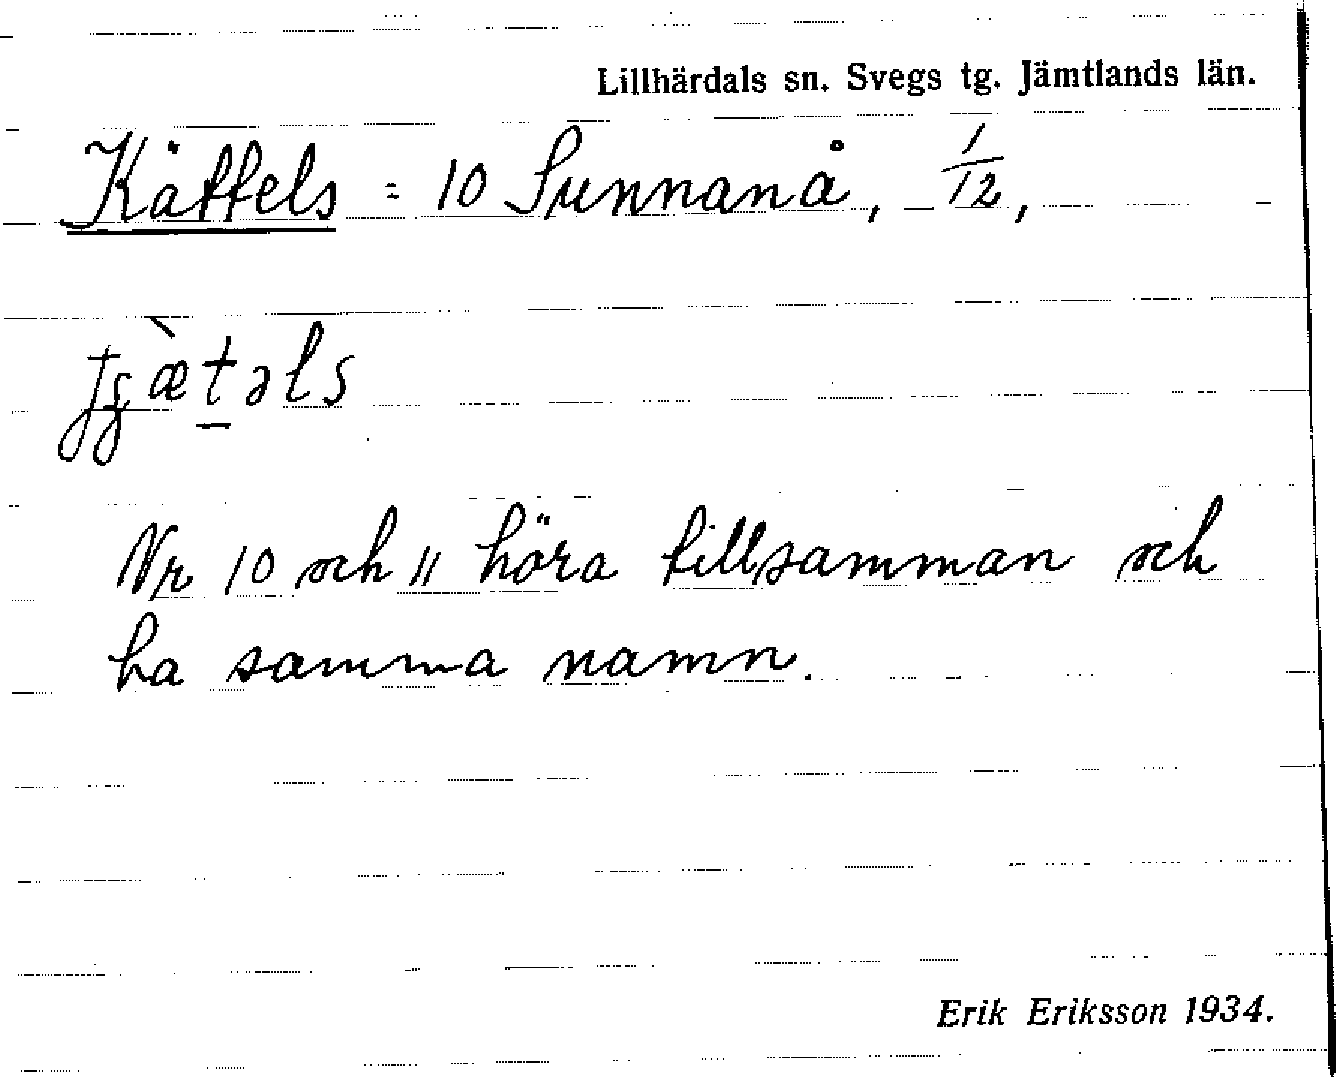 Lillhärdals sn. Svegs tg. Jämtlands län.
Kättels = 10 Sunnanå, 1/12,
Nr 10 och 11 höra tillsamman och
ha samma namn.
Erik Eriksson 1934.